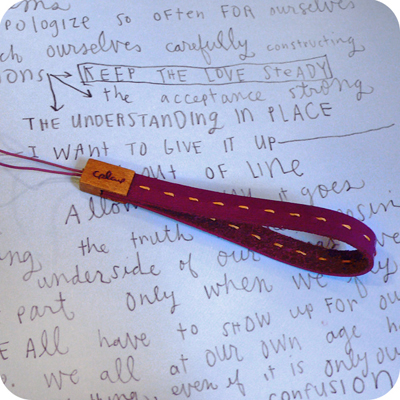 pologize so often FOR ourselves
ch ourselves carefully constructing
ions KEEP THE LOVE STEADY
the acceptance strong
THE UNDERSTANDING IN PLACE
I WANT TO GIVE IT UP
out OF LINE
Allow it goes
ng the truth
underside of our
part only when we
E All have to SHOW up FOR ou
we all at our own age ha
even if it is only ou
confusion